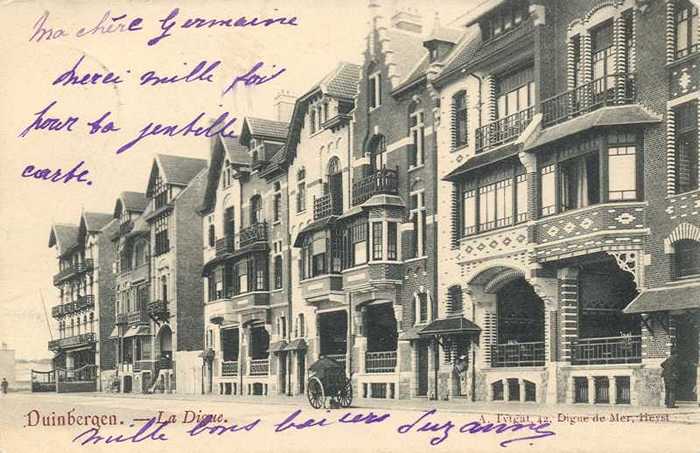 Ma chère Germaine
merci mille foi
pour ta jentille
carte.
Duinbergen. — La Digue.
A. Tytgat, 42, Digue de Mer, Heyst
mille bons baisers Suzanne